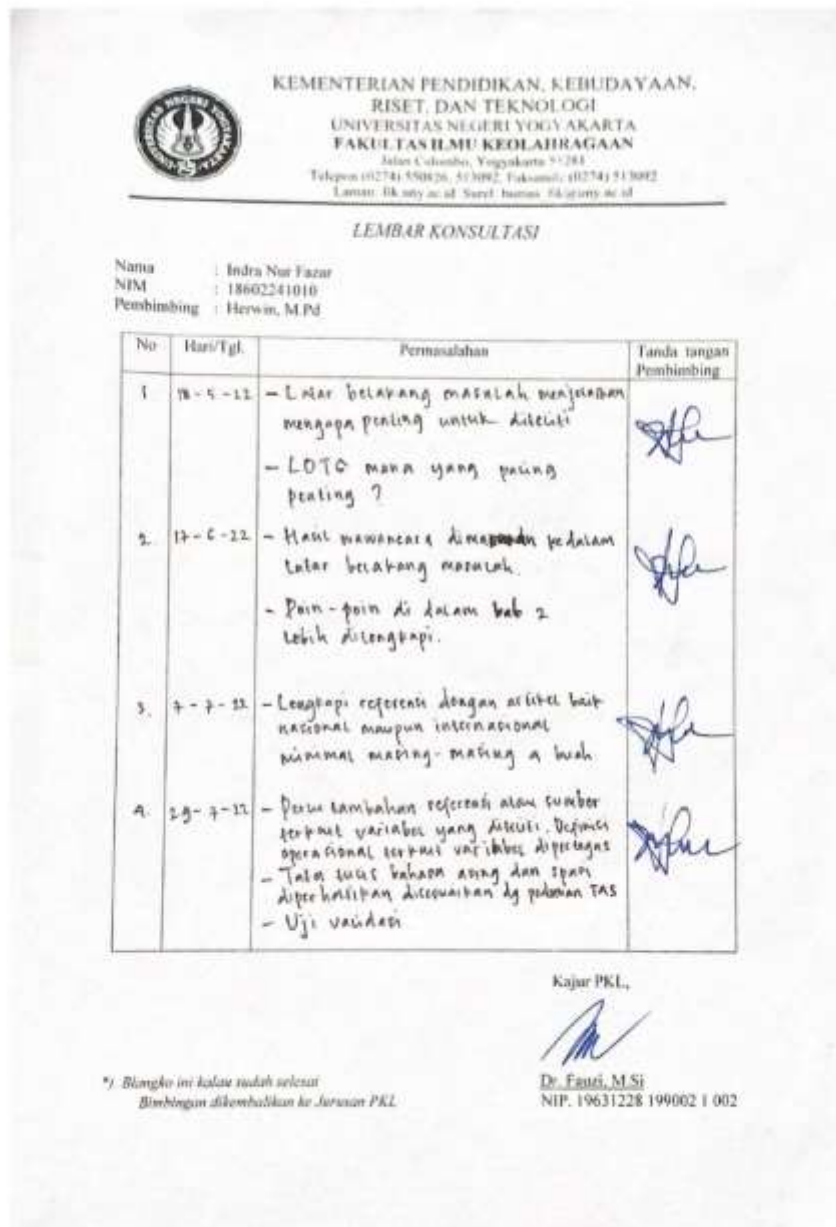 KEMENTERIAN PENDIDIKAN, KEBUDAYAAN,
RISET, DAN TEKNOLOGI
UNIVERSITAS NEGERI YOGYAKARTA
FAKULTAS ILMU KEOLAHRAGAAN
Jalan Colombo, Yogyakarta
Telepon (0274) 513092
LEMBAR KONSULTASI
Nama : Indra Nur Fazar
NIM : 18602241010
Pembimbing : Herwin, M.Pd
No Hari/Tgl. Permasalahan Tanda tangan
Pembimbing
1 18-5-22 - Latar belakang masalah menjelaskan
mengapa penting untuk diteliti
- mana yang paling
penting ?
2. 17-6-22 - Hasil wawancara ke dalam
latar belakang masalah.
- Poin-poin di dalam bab 2
lebih dilengkapi.
3. 7-7-22 - Lengkapi referensi dengan artikel baik
nasional maupun internasional
minimal masing-masing buah
4. 29-7-22 - Perlu tambahan referensi atau sumber
terkait variabel yang diteliti. Definisi
operasional terkait variabel dipertegas
- Tata tulis bahasa asing dan spasi
diperhatikan disesuaikan dg pedoman TAS
- Uji validasi
Kajur PKL,
*) Blangko ini kalau sudah selesai
Bimbingan dikembalikan ke Jurusan PKL
Dr. Fauzi, M.Si
NIP. 19631228 199002 1 002